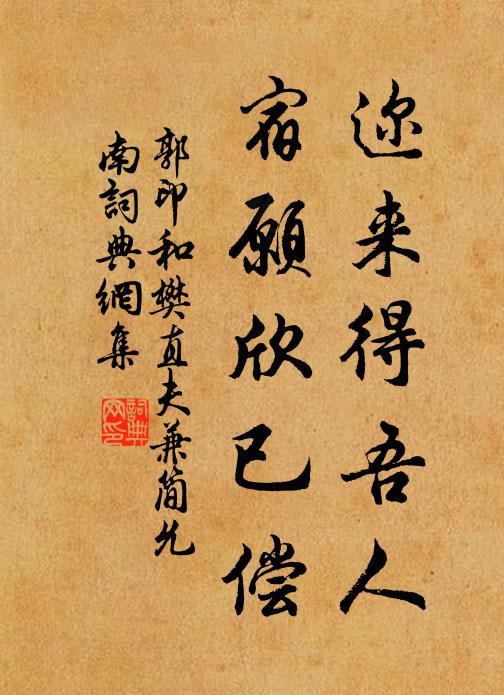 迩来得吾人
宿愿欣已偿
郭印和樊直夫兼简允
南词典網集
詞典网印